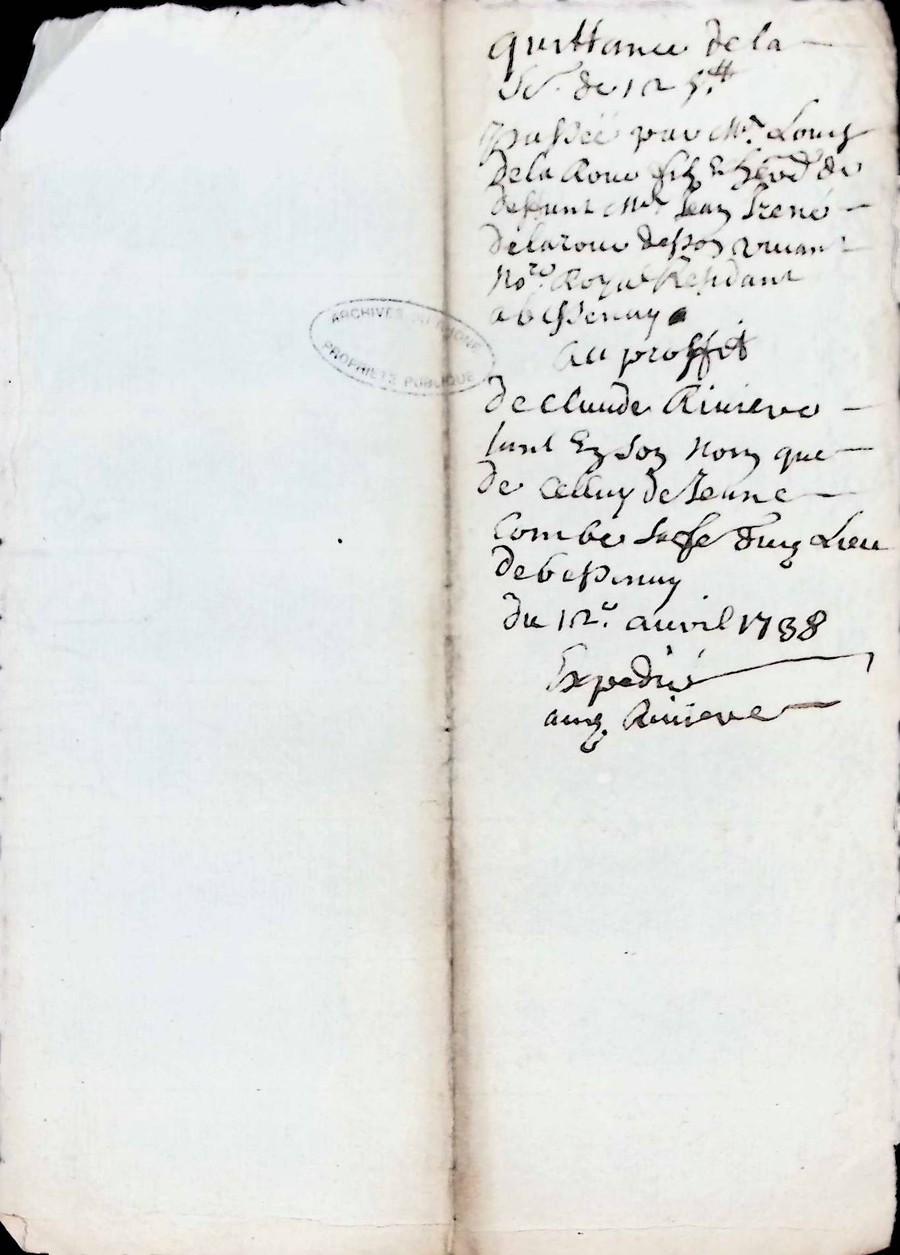 quittance de la
So.e de 12 s.tt
passée par Me. Louis
Delaroue filz & héred. de
deffunt Me. Jean Irené
delaroue de son vivant
no.re Royal Résidant
a bessenay
au proffit
de claude Riviere
tant En son nom que
de celluy de Jeane
Combe sa fe dud. Lieu
de bessenay
du 12.e avril 1738
Expedié
aud. Riviere
ARCHIVES DU RHONE
PROPRIETE PUBLIQUE